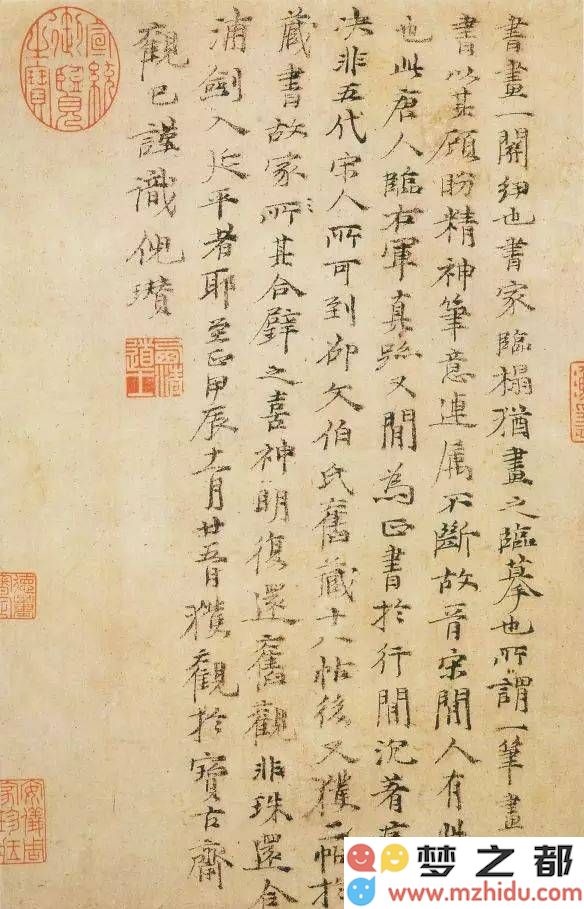 書畫一關紐也書家臨榻猶畫之臨摹也所謂一筆畫
書以其顧盼精神筆意連屬不斷故晉宋間人有此
也此唐人臨右軍真跡又間為正書於行間沉著
決非五代宋人所可到卻文伯氏舊藏十八帖後又獲二帖於
藏書故家所其合璧之喜神明復還舊觀非珠還合
浦劍入延平者耶至正甲辰十一月廿五日瓚觀於寶古齋
觀已謹識倪瓚
宣統御覽之寶
安儀周家珍藏
梦之都
www.mzhidu.com